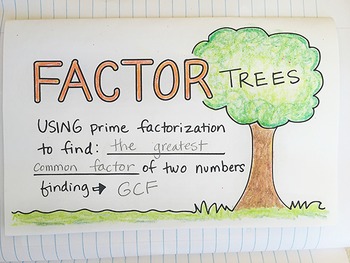 FACTOR TREES
USING prime factorization
to find: the greatest
common factor of two numbers
finding → GCF